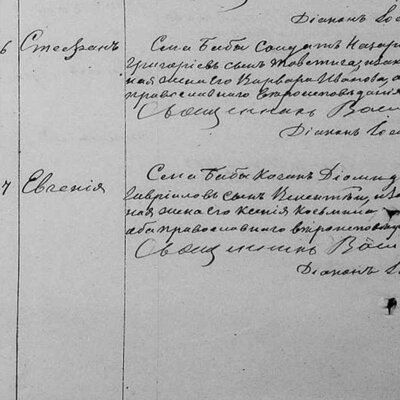 Діаконъ Іос
6 Стефанъ Села Бабы Солдатъ Назар
Григоріевъ сынъ Жовтяга, зако
ная жена его Варвара Иванова, о
православнаго вѣроисповѣданія
Священникъ Васи
Діаконъ Іос
7 Евгенія Села Бабы Козакъ Діомид
Гавріиловъ сынъ и зако
ная жена его Ксенія Козьмина
оба православнаго вѣроисповѣд
Священникъ Васи
Діаконъ І